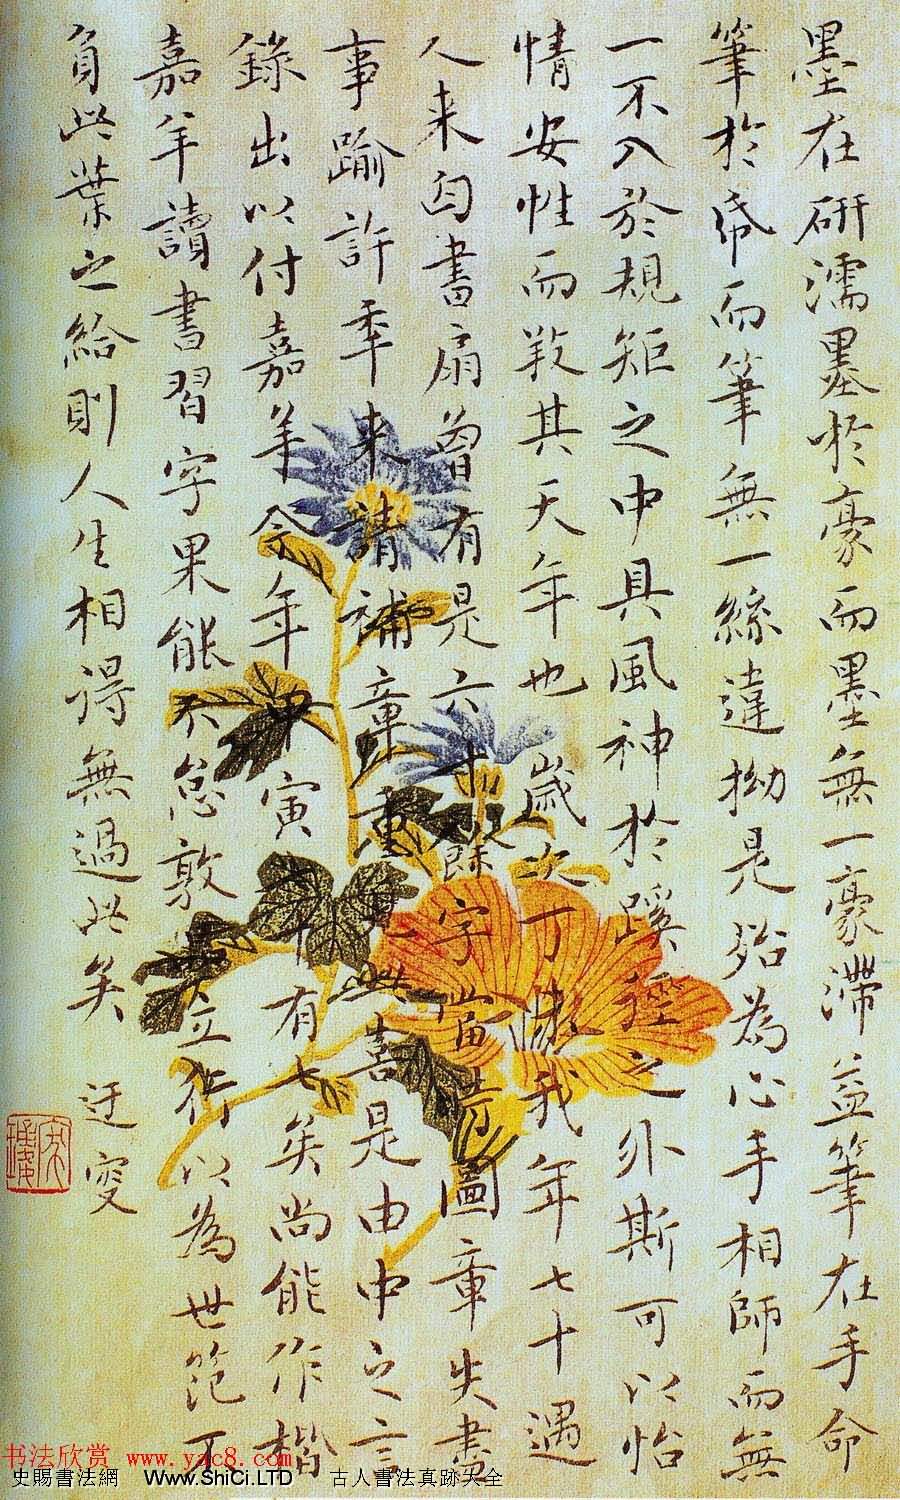 墨在研濡墨於豪而墨無一豪滯益筆在手命
筆於帋而筆無一絲違拗是殆為心手相師而無
一不入於規矩之中具風神於蹊徑之外斯可以怡
情安性而養其天年也 歲次丁我年七十遇
人来匃書扇曾有是六十餘字當時圖章失畫
事踰許年来請補章重此喜是由中之言
錄出以付嘉羊今年寅有七矣尚能作楷
嘉羊讀書習字果能不怠敦立行以為世範不
負此葉之給則人生相得無過此矣 迂叟
书法欣赏 www.yac8.com
史賜書法網 Www.ShiCi.LTD 古人書法真跡大全